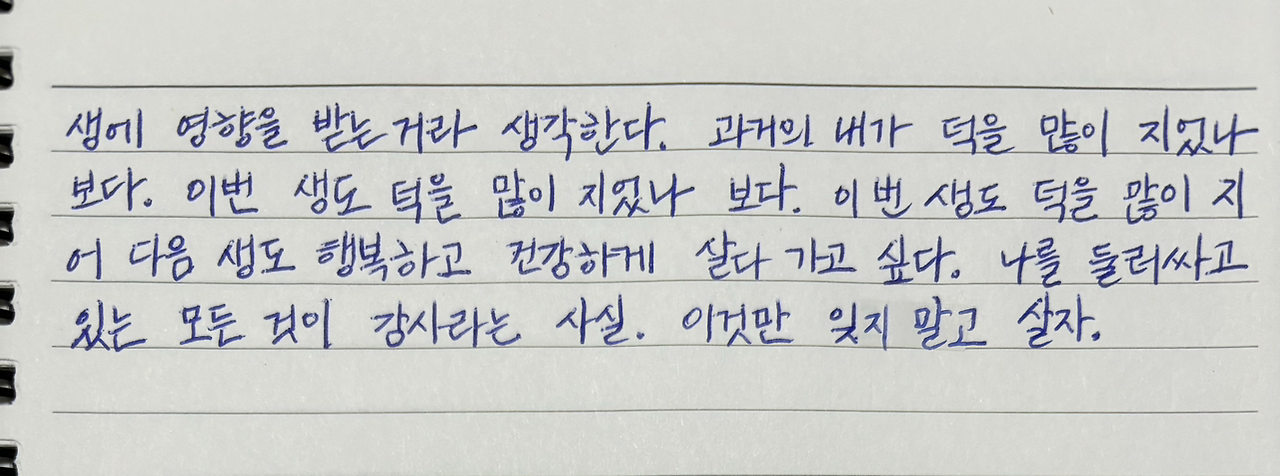 생에 영향을 받는 거라 생각한다. 과거의 내가 덕을 많이 지었나
보다. 이번 생도 덕을 많이 지었나 보다. 이번 생도 덕을 많이 지
어 다음 생도 행복하고 건강하게 살다 가고 싶다. 나를 둘러싸고
있는 모든 것이 감사라는 사실. 이것만 잊지 말고 살자.